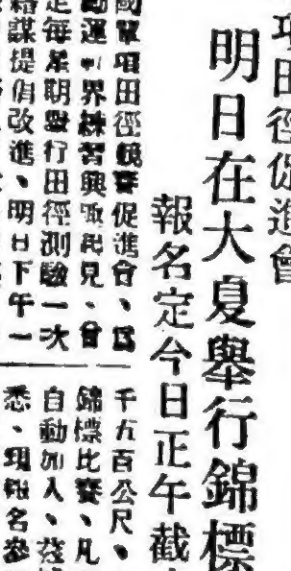 項田徑促進會
明日在大夏舉行錦標
報名定今日正午截
國單項田徑競賽促進會、爲
運界練習興趣起見、曾
定每星期舉行田徑測驗一次
謀提倡改進、明日下午一
千五百公尺、
錦標比賽、凡
自動加入、茲
悉、現報名參